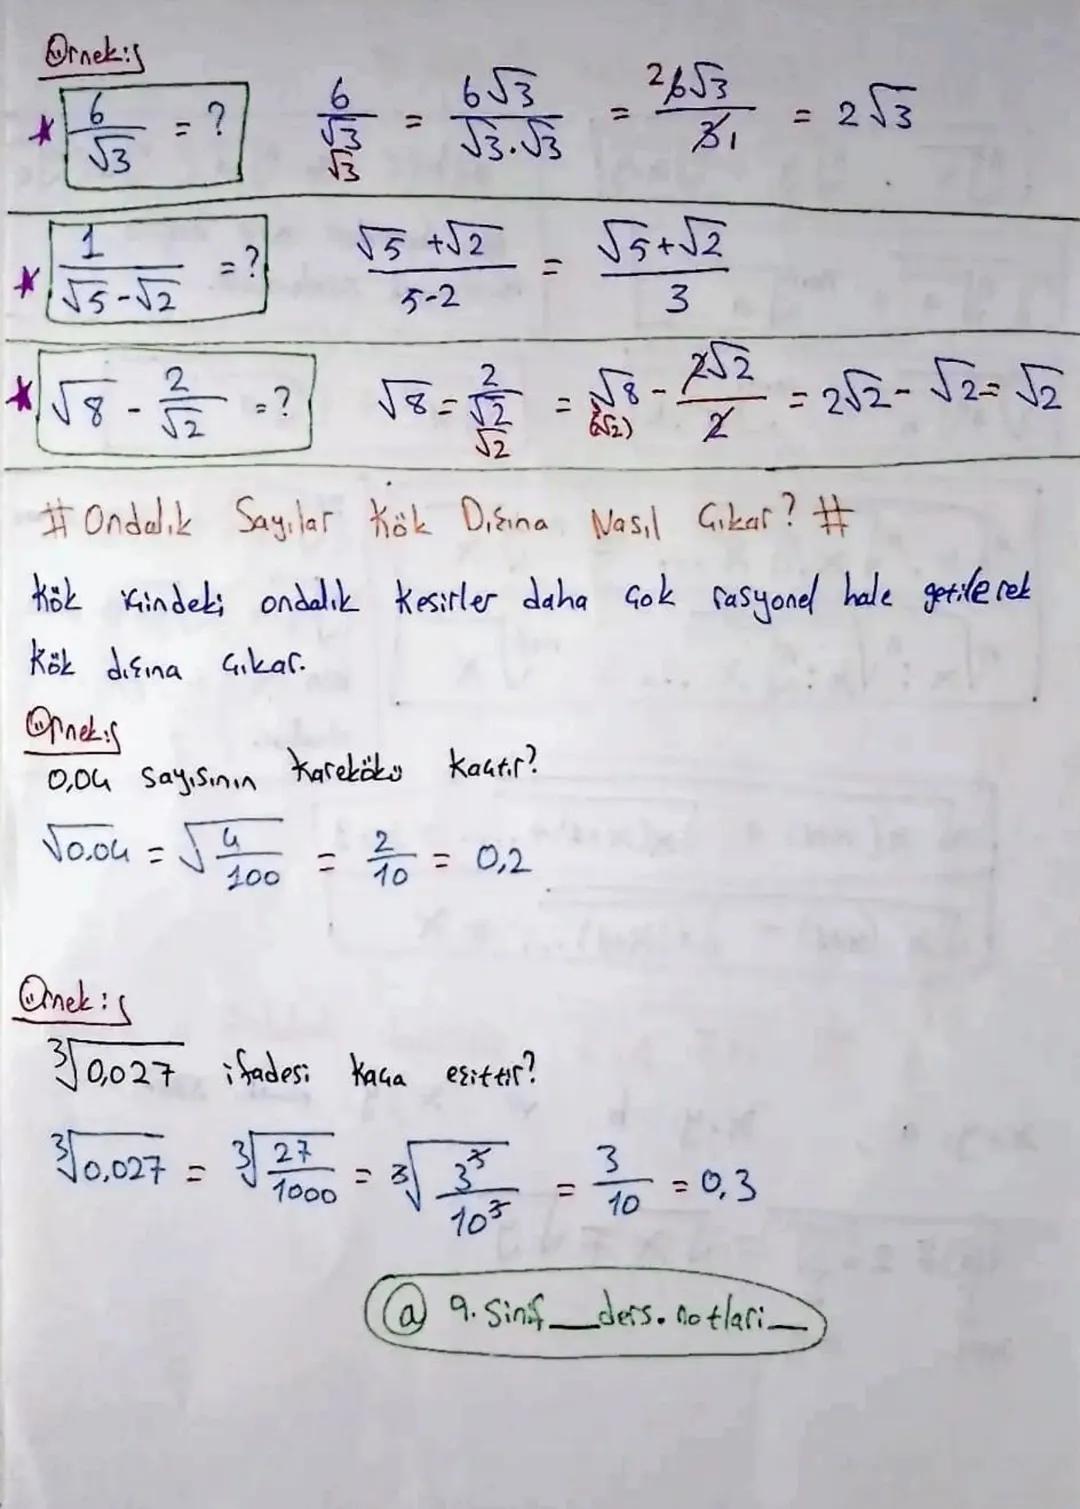 Örnek:
* 6/√3 = ? 6/√3 √3 = 6√3/√3.√3 = 2 6√3/3 1 = 2√3
* 1/√5-√2 = ? √5+√2/5-2 = √5+√2/3
* √8 - 2/√2 = ? √8 - 2/√2 √2 = √8 (2√2) - 2√2/2 = 2√2 - √2 = √2
# Ondalık Sayılar Kök Dışına Nasıl Çıkar? #
Kök içindeki ondalık kesirler daha çok rasyonel hale getilerek
Kök dışına çıkar.
Örnek:
0,04 sayısının karekökü kaçtır?
√0.04 = √4/100 = 2/10 = 0,2
Örnek:
³√0,027 ifadesi kaça eşittir?
³√0,027 = ³√27/1000 = ³√3³/10³ = 3/10 = 0,3
@ 9.sinif__ders.notlari_